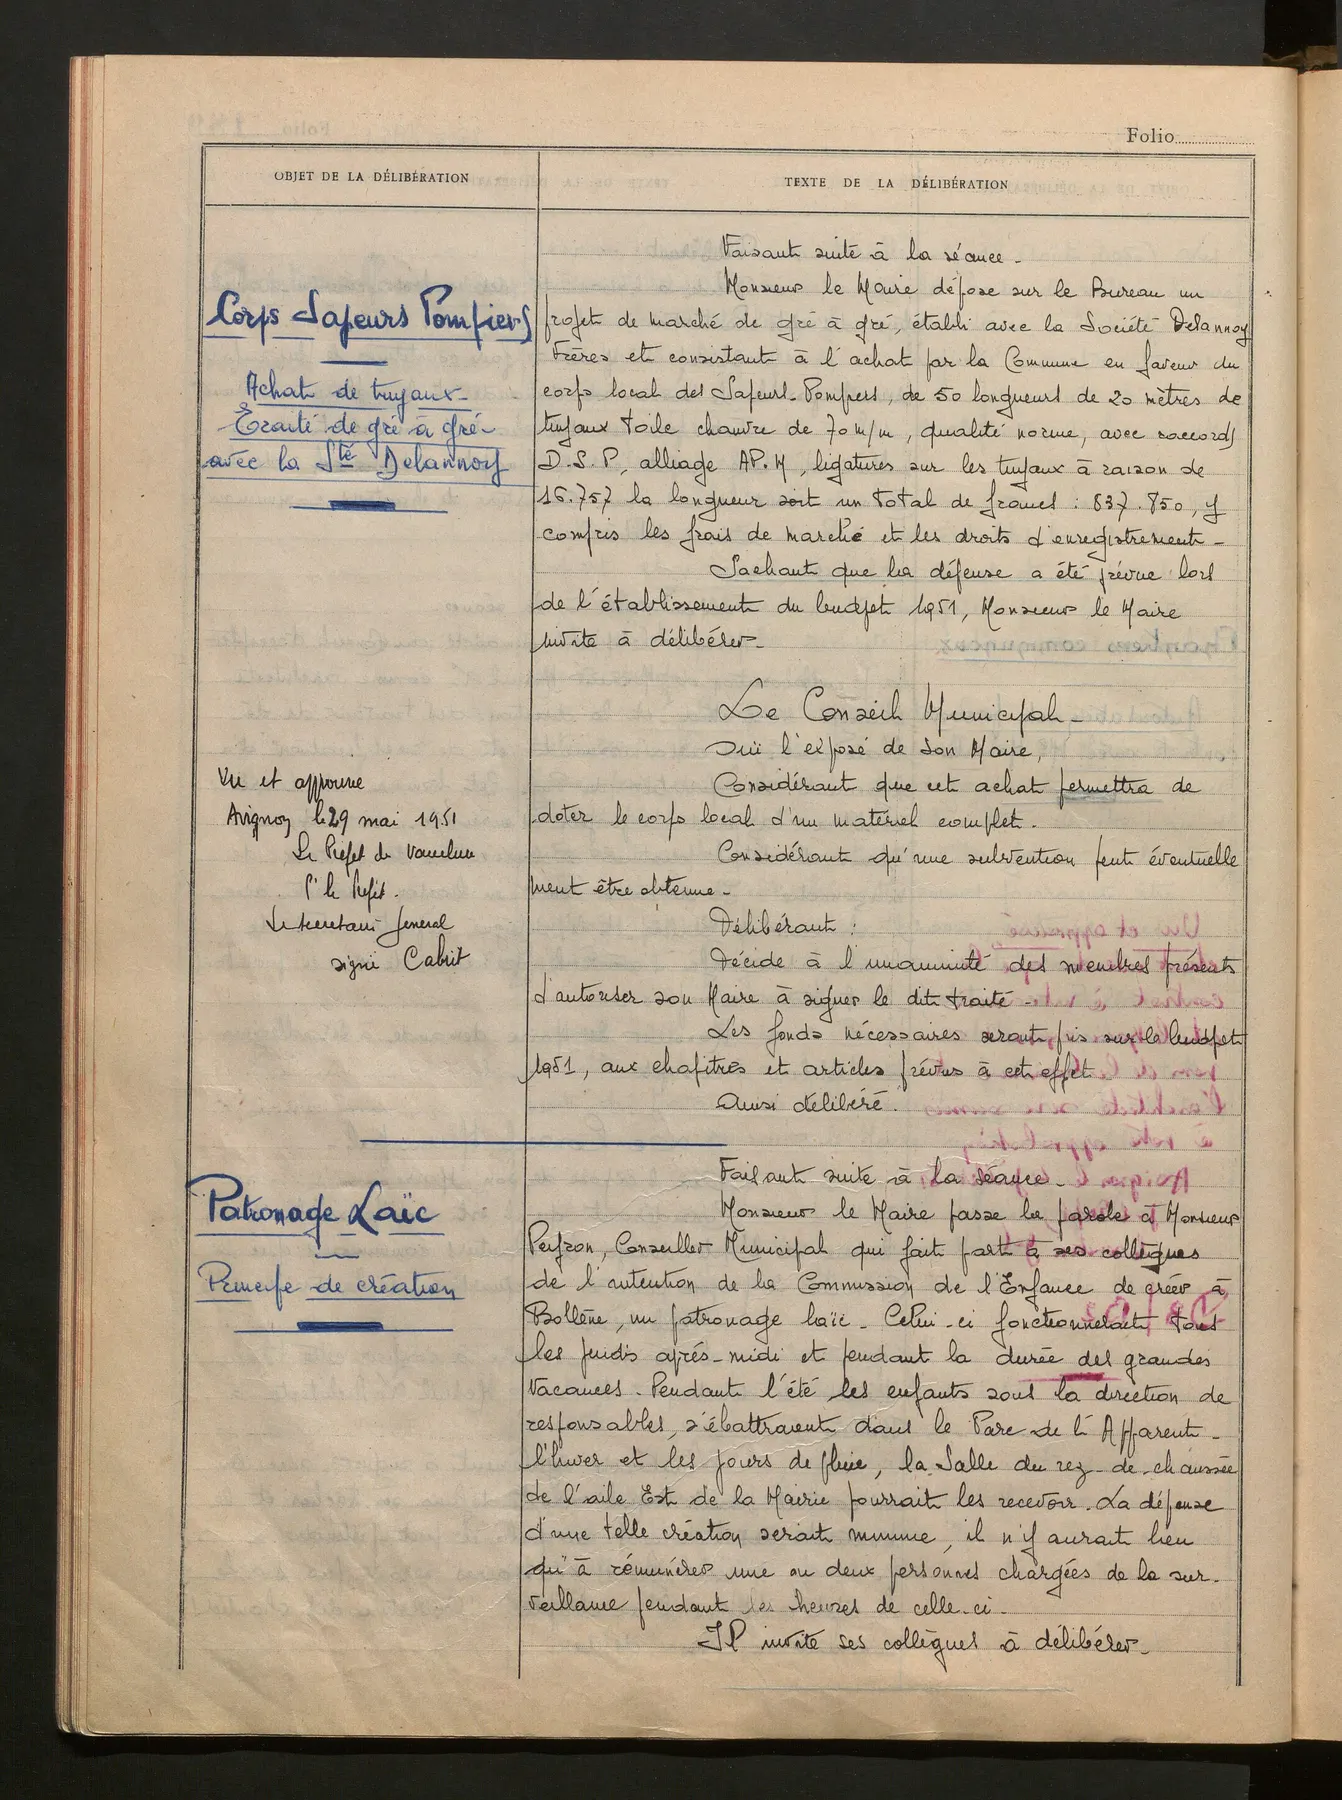 Folio
OBJET DE LA DÉLIBÉRATION
TEXTE DE LA DÉLIBÉRATION
Corps Sapeurs Pompiers
Achat de tuyaux-
Traité de gré à gré-
avec la Sté Delannoy
Faisant suite à la séance-
Monsieur le Maire dépose sur le Bureau un
projet de marché de gré à gré, établi avec la Société Delannoy
Frères et consistant à l'achat par la Commune en faveur du
corps local des Sapeurs-Pompiers, de 50 longueurs de 20 mètres de
tuyaux toile chanvre de 70 m/m, qualité norme, avec raccords
D.S.P, alliage AP.M, ligatures sur les tuyaux à raison de
16.757 la longueur soit un total de francs : 837.850, y
compris les frais de marché et les droits d'enregistrement-
Sachant que la dépense a été prévue lors
de l'établissement du budget 1951, Monsieur le Maire
invite à délibérer-
Le Conseil Municipal-
Ouï l'exposé de son Maire,
Considérant que cet achat permettra de
doter le corps local d'un matériel complet-
Considérant qu'une subvention peut éventuelle
ment être obtenue-
Délibérant :
Décide à l'unanimité des membres présents
d'autoriser son Maire à signer le dit traité-
Les fonds nécessaires seront pris sur le budget
1951, aux chapitres et articles prévus à cet effet
Ainsi délibéré.
Vu et approuvé
Avignon le 29 mai 1951
Le Préfet de Vaucluse
P' le Préfet.
Le secrétaire général
signé Cabrit
Patronage Laïc
Principe de création
Faisant suite à la séance-
Monsieur le Maire passe la parole à Monsieur
Peyron, Conseiller Municipal qui fait part à ses collègues
de l'intention de la Commission de l'Enfance de créer à
Bollène, un patronage laïc- Celui-ci fonctionnerait tous
les jeudis après-midi et pendant la durée des grandes
vacances- Pendant l'été les enfants sous la direction de
responsables, s'ébattraient dans le Parc de l'Apparent-
l'hiver et les jours de pluie, la Salle du rez-de-chaussée
de l'aile Est de la Mairie pourrait les recevoir. La dépense
d'une telle création serait minime, il n'y aurait lieu
qu'à rémunérer une ou deux personnes chargées de la sur-
veillance pendant les heures de celle-ci-
Il invite ses collègues à délibérer-